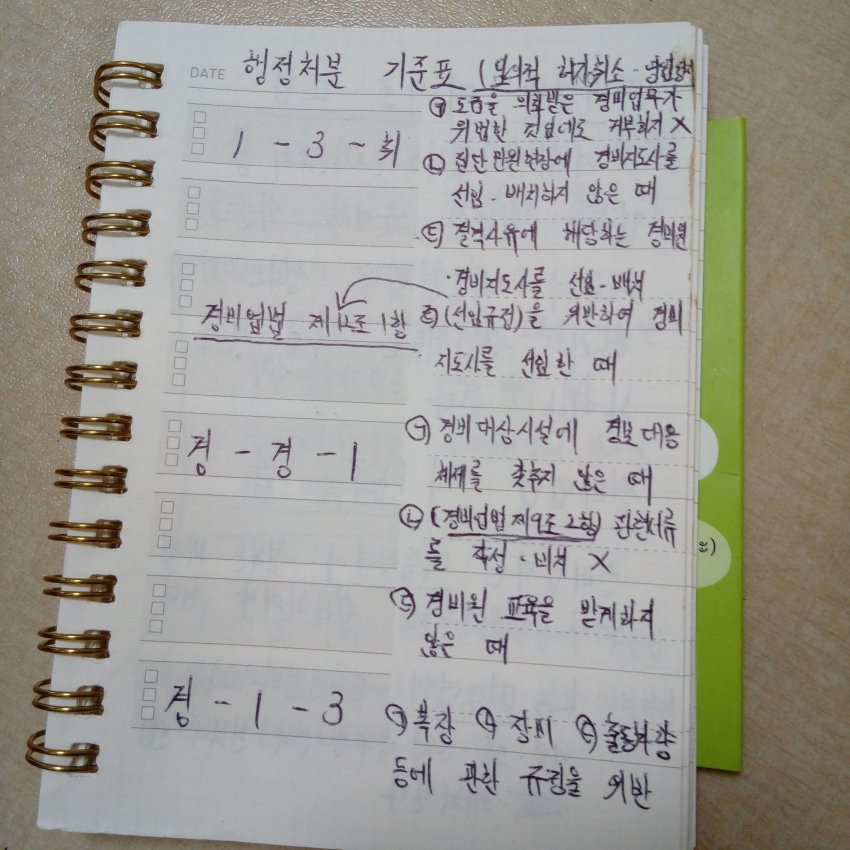 DATE 행정처분 기준표 (임의적 허가취소·영업정지
㉠ 도급을 의뢰받은 경비업무가
위법한 것임에도 거부하지 X
1 - 3 - 취
㉡ 집단민원현장에 경비지도사를
선임·배치하지 않은 때
㉢ 결격사유에 해당하는 경비원
·경비지도사를 선임·배치
경비업법 제12조 1항
㉣ (선임규정)을 위반하여 경비
지도사를 선임한 때
㉠ 경비대상시설에 경보대응
체제를 갖추지 않은 때
경 - 경 - 1
㉡ (경비업법 제9조 2항) 관련서류
를 작성·비치 X
㉢ 경비원 교육을 받게하지
않은 때
경 - 1 - 3
㉠ 복장 ㉡ 장비 ㉢ 출동차량
등에 관한 규정을 위반
ee)